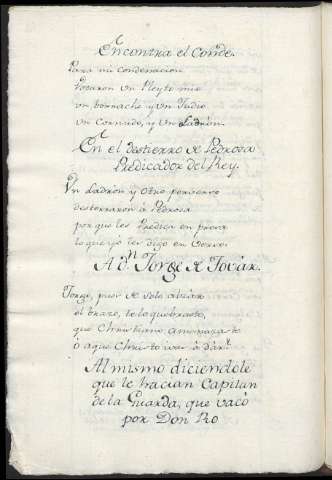 Encontra el Conde.
Para mi condenacion
tocaron un Pleyto mio
un borracho y un Judio
un Cornudo, y un Ladron.
En el destierro de Pedrosa
Predicador del Rey.
Un Ladron y otro perverso
desterraron á Pedrosa
porque les Predica en prosa
lo que yo les digo en Verso.
A Dn. Jorge de Továr.
Jorge, pues de solo alzár
el brazo, te lo quebraste,
que Christiano amenazaste
ó a que Christo ivas á dár?
Al mismo diciendole
que le hacian Capitan
de la Guarda, que vacó
por Don Ro